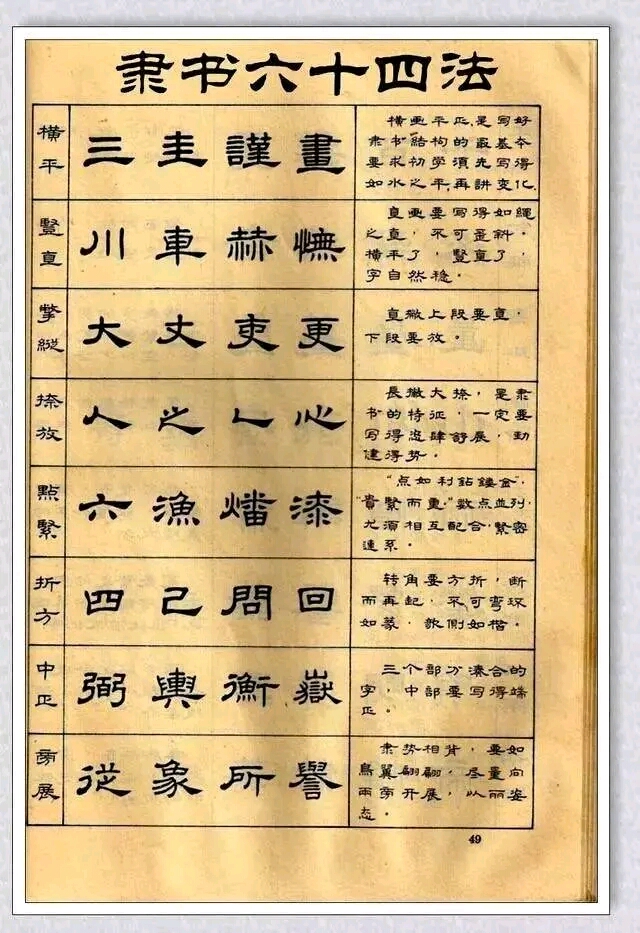 隶书六十四法
横平
三圭謹畫
横画平正,是写好
隶书结构的最基本
要求初学的須先写得
如水之平,再讲变化.
豎直
川車赫憮
直画要写得如繩
之直,不可歪斜。
横平了,豎直了,
字自然稳。
撇縱
大丈吏更
直撇上段要直,
下段要放。
捺放
人之乀心
長撇大捺,是隶
书的特征,一定要
写得逸肆舒展,劲
健得势。
點緊
六漁燔漆
“点如利鉆鏤金”,
“貴緊而重。”数点並列,
尤須相互配合,緊密
連系。
折方
四己問回
转角要方折,断
而再起,不可弯环
如篆,欹側如楷。
中正
弼輿衡嶽
三个部分湊合的
字,中部要写得端
正。
旁展
從象所譽
隶势相背,要如
鳥翼翩翩,尽量向
兩旁开展,以丽姿
态。
49